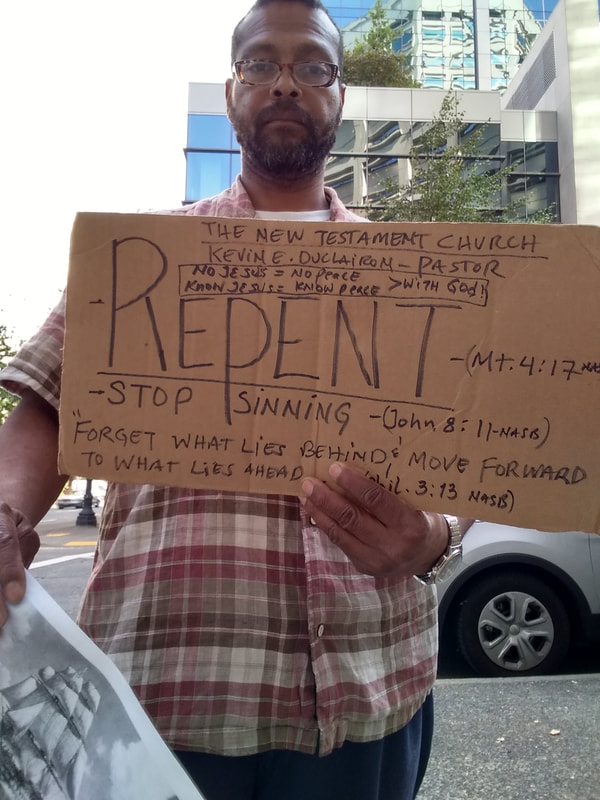 THE NEW TESTAMENT CHURCH
KEVIN E. DUCLAIROM - PASTOR
NO JESUS = NO PEACE
KNOW JESUS = KNOW PEACE > WITH GOD!
- REPENT - (Mt. 4:17 NAS
- STOP SINNING - (John 8:11-NASB)
"FORGET WHAT LIES BEHIND & MOVE FORWARD
TO WHAT LIES AHEAD (Phil. 3:13 NASB)